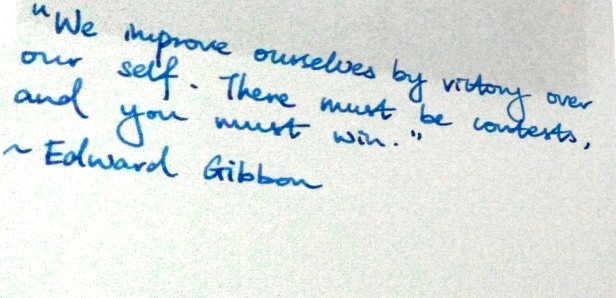 "We improve ourselves by victory over
our self. There must be contests,
and you must win."
~ Edward Gibbon